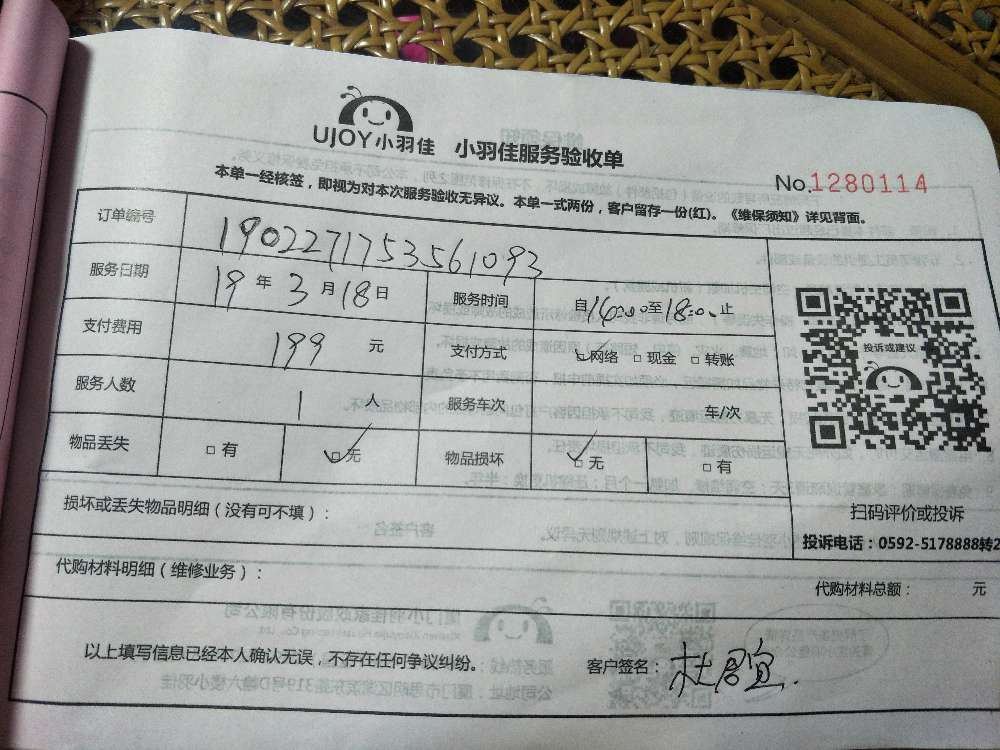 UJOY小羽佳 小羽佳服务验收单
No.1280114
本单一经核签，即视为对本次服务验收无异议。本单一式两份，客户留存一份(红)。《维保须知》详见背面。
订单编号 1902271753561093
服务日期 19年3月18日 服务时间 自14:00至18:00止
支付费用 199 元 支付方式 ☑网络 □现金 □转账
服务人数 1 人 服务车次 车/次
物品丢失 □有 ☑无 物品损坏 ☑无 □有
投诉或建议
扫码评价或投诉
投诉电话：0592-5178888转2
损坏或丢失物品明细（没有可不填）：
代购材料明细（维修业务）：
代购材料总额： 元
以上填写信息已经本人确认无误，不存在任何争议纠纷。
客户签名：杜君宜